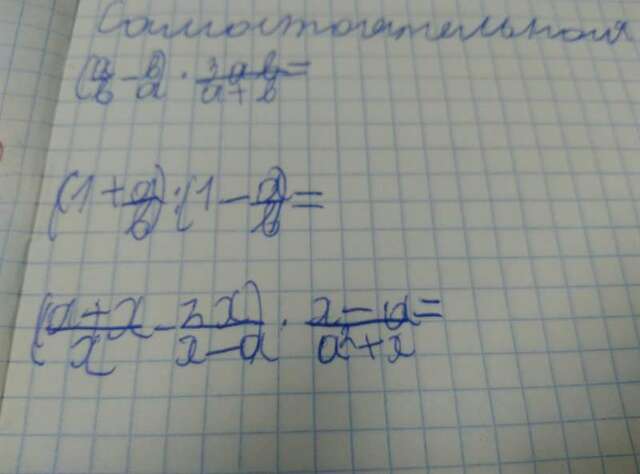 Самостоятельная
(a/b - b/a) · 3ab/(a+b) =
(1 + a/b) : (1 - a/b) =
((a+x)/x - 2x/(x-a)) · (x-a)/(a²+x) =